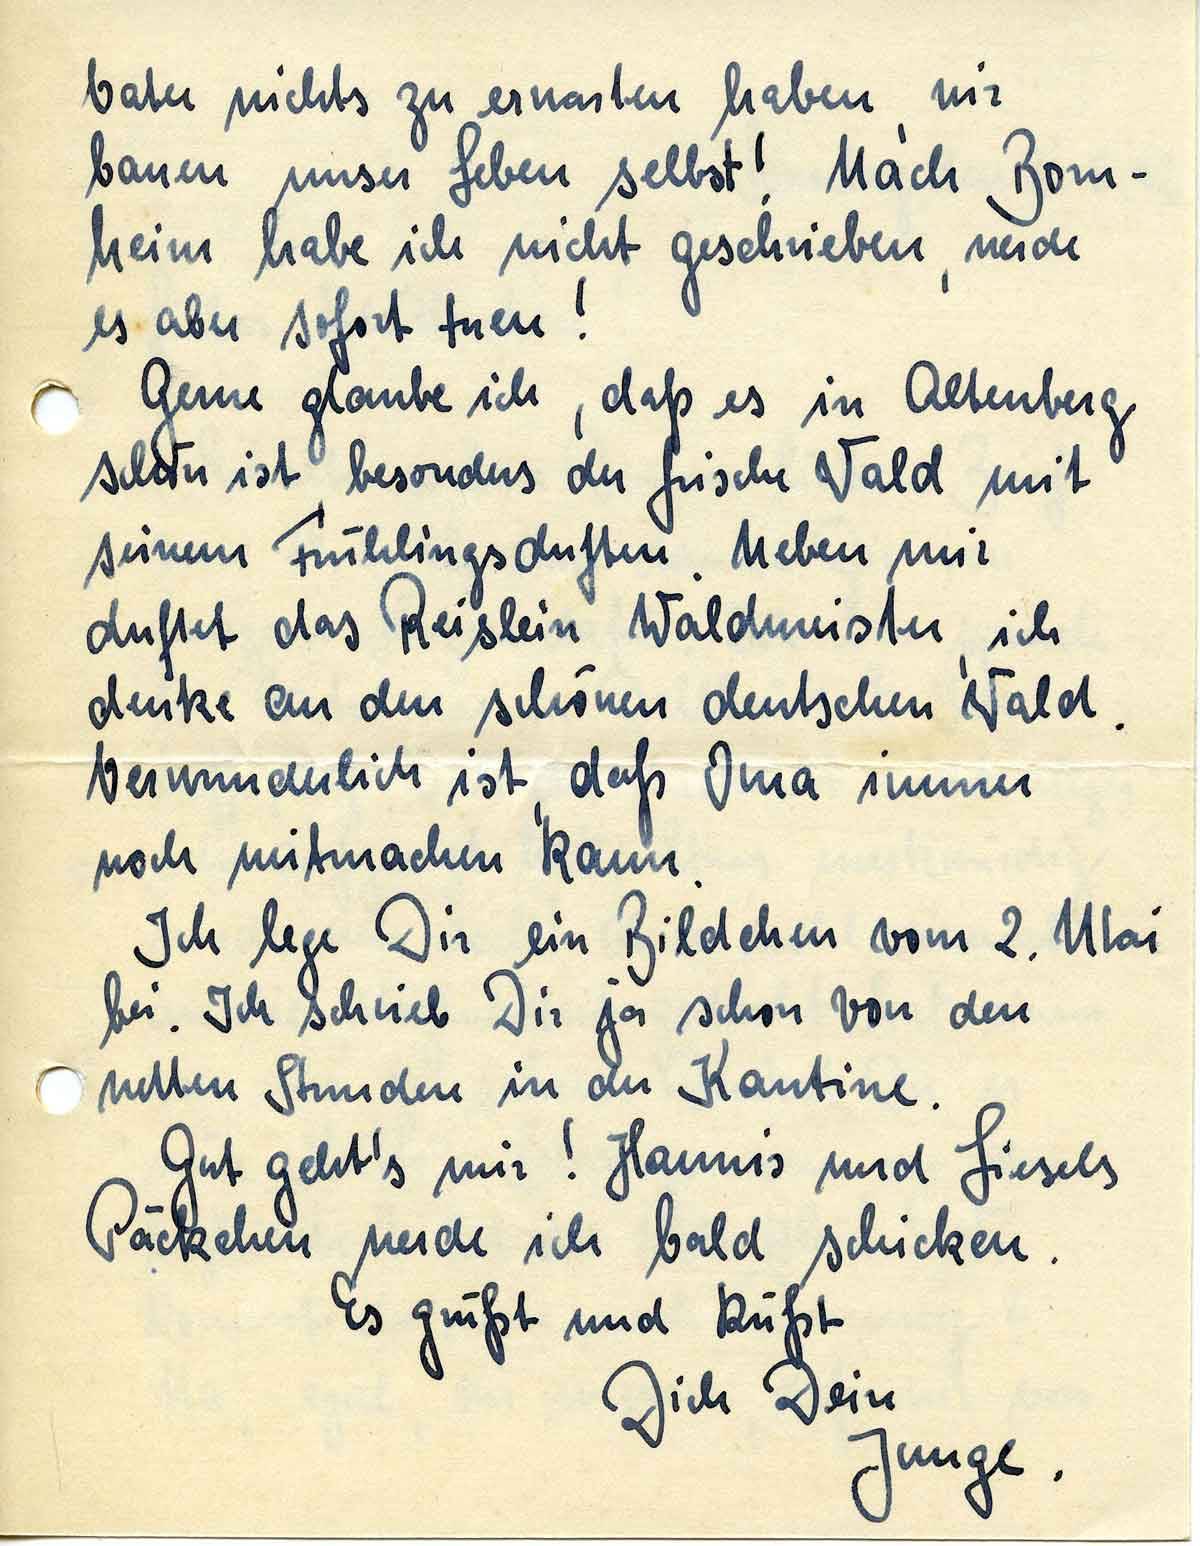 vater nichts zu erwarten haben, wir
bauen unser Leben selbst! Nach Born-
heim habe ich nicht geschrieben, werde
es aber sofort tuen!
Gerne glaube ich, daß es in Altenberg
schön ist, besonders der frische Wald mit
seinem Frühlingsduften. Neben mir
duftet das Reislein Waldmeister, ich
denke an den schönen deutschen Wald.
Verwunderlich ist, daß Oma immer
noch mitmachen kann.
Ich lege Dir ein Bildchen vom 2. Mai
bei. Ich schrieb Dir ja schon von den
netten Stunden in der Kantine.
Gut geht's mir! Hannis und Liesels
Päckchen werde ich bald schicken.
Es grüßt und küßt
Dich Dein
Junge.